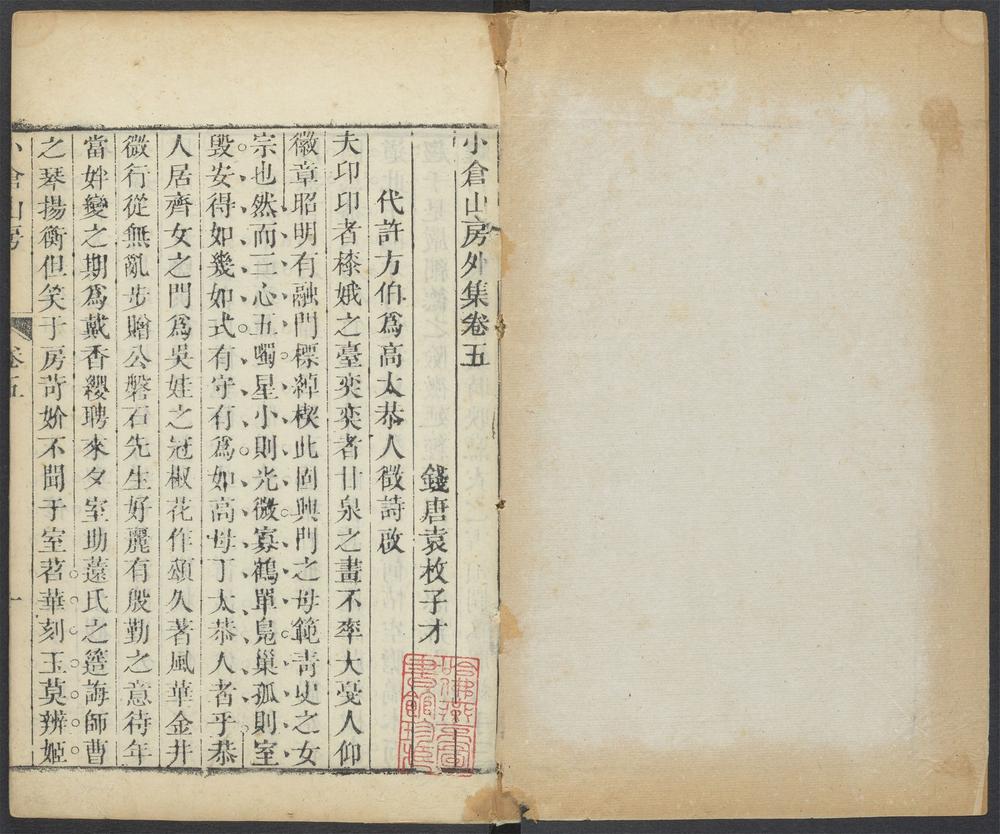 小倉山房外集卷五
錢唐袁枚子才
代許方伯爲高太恭人徵詩啟
夫卬卬者㮶娥之臺奕奕者甘泉之畫不率大戞人仰
徽章昭明有融門標綽楔此固興門之母範靑史之女
宗也然而三心五噣星小則光微寡鶴單鳧巢孤則室
毁安得如幾如式有守有爲如高母丁太恭人者乎恭
人居齊女之門爲吳娃之冠椒花作頌久著風華金井
微行從無亂步贈公磐石先生好麗有殷勤之意待年
當姅變之期爲戴香纓聘來夕室助薳氏之簉誨師曹
之琴揚衡但笑于房苛妎不聞于室茗華刻玉莫辨姬
小倉山房
卷五
一
哈佛燕京圖
書館珍藏